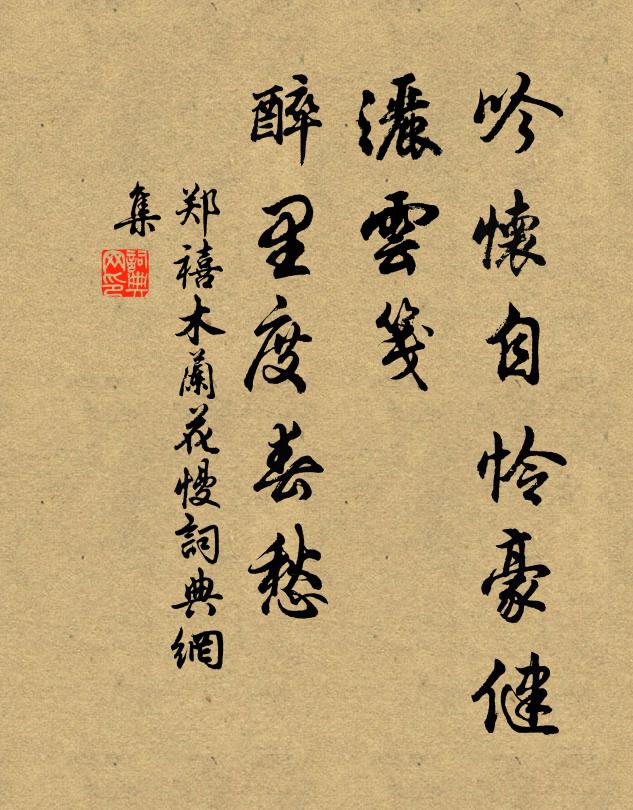 吟懷自怜豪健
灑雲箋
醉里度春愁
郑禧木蘭花慢詞典網
集
詞典
网印